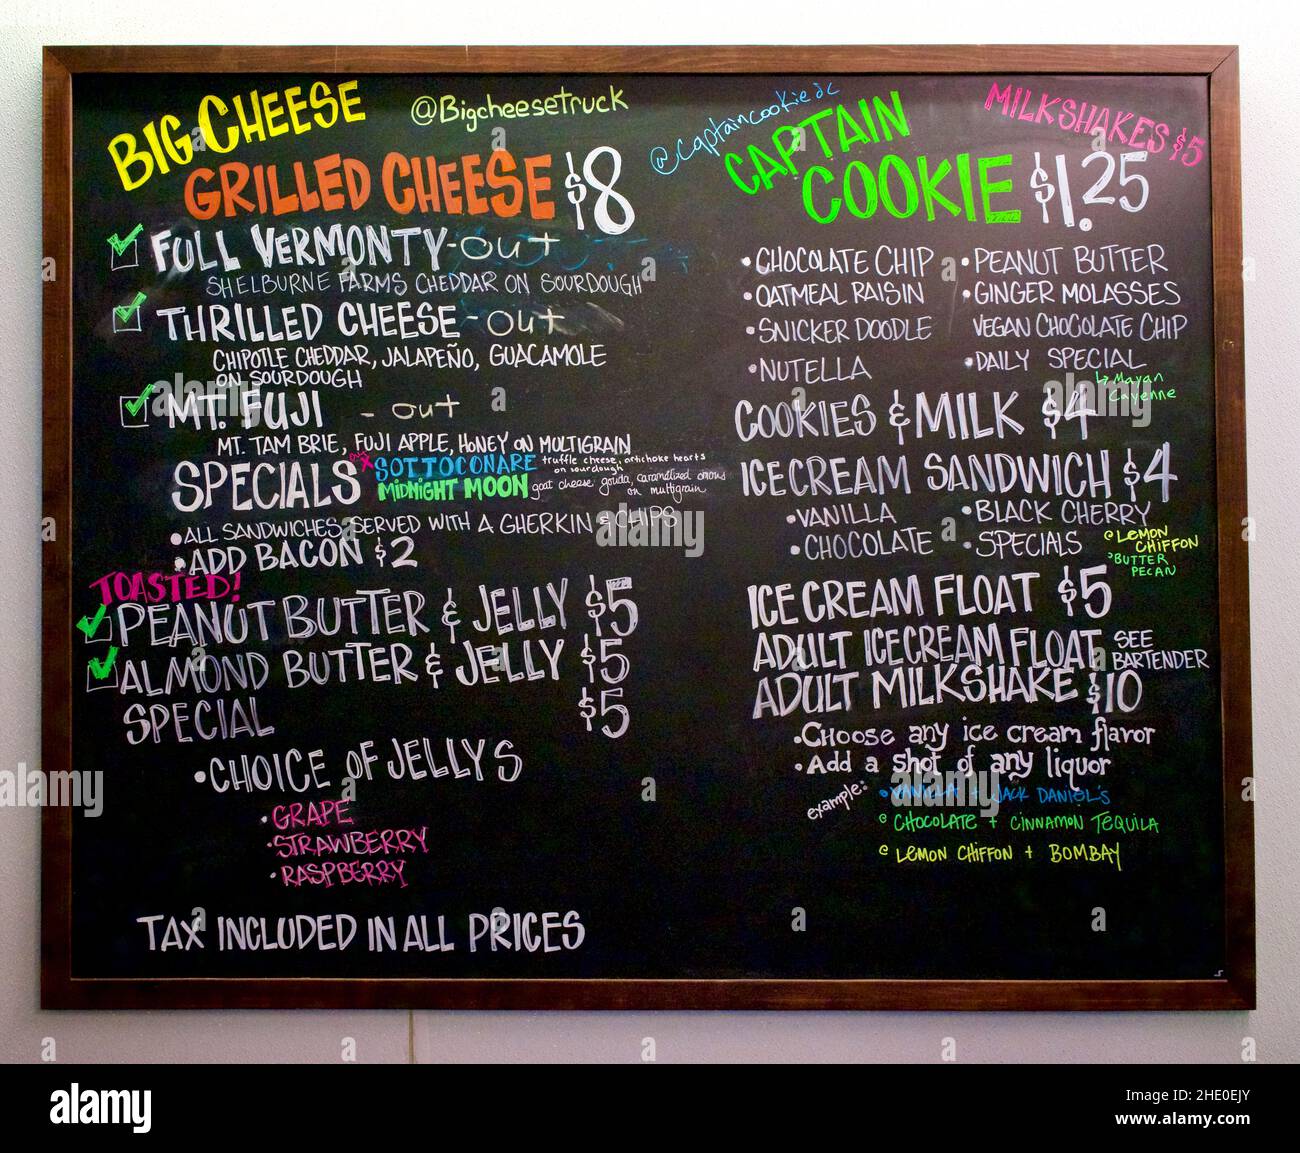 BIG CHEESE
@Bigcheesetruck
GRILLED CHEESE $8
FULL VERMONTY - out
SHELBURNE FARMS CHEDDAR ON SOURDOUGH
THRILLED CHEESE - out
CHIPOTLE CHEDDAR, JALAPEÑO, GUACAMOLE
ON SOURDOUGH
MT. FUJI - out
MT. TAM BRIE, FUJI APPLE, HONEY ON MULTIGRAIN
SPECIALS
SOTTOCONARE truffle cheese, artichoke hearts
on sourdough
MIDNIGHT MOON goat cheese gouda, caramelized onions
on multigrain
•ALL SANDWICHES SERVED WITH A GHERKIN & CHIPS
•ADD BACON $2
TOASTED!
PEANUT BUTTER & JELLY $5
ALMOND BUTTER & JELLY $5
SPECIAL $5
•CHOICE OF JELLYS
•GRAPE
•STRAWBERRY
•RASPBERRY
TAX INCLUDED IN ALL PRICES
@captaincookiedc
MILKSHAKES $5
CAPTAIN
COOKIE $1.25
•CHOCOLATE CHIP •PEANUT BUTTER
•OATMEAL RAISIN •GINGER MOLASSES
•SNICKER DOODLE VEGAN CHOCOLATE CHIP
•NUTELLA •DAILY SPECIAL
↳ Mayan
Cayenne
COOKIES & MILK $4
ICE CREAM SANDWICH $4
•VANILLA •BLACK CHERRY
•CHOCOLATE •SPECIALS
LEMON
CHIFFON
BUTTER
PECAN
ICE CREAM FLOAT $5
ADULT ICE CREAM FLOAT SEE
BARTENDER
ADULT MILKSHAKE $10
•Choose any ice cream flavor
•Add a shot of any liquor
example:
•VANILLA + JACK DANIEL'S
CHOCOLATE + CINNAMON TEQUILA
LEMON CHIFFON + BOMBAY
alamy
Image ID: 2HE0EJY
www.alamy.com